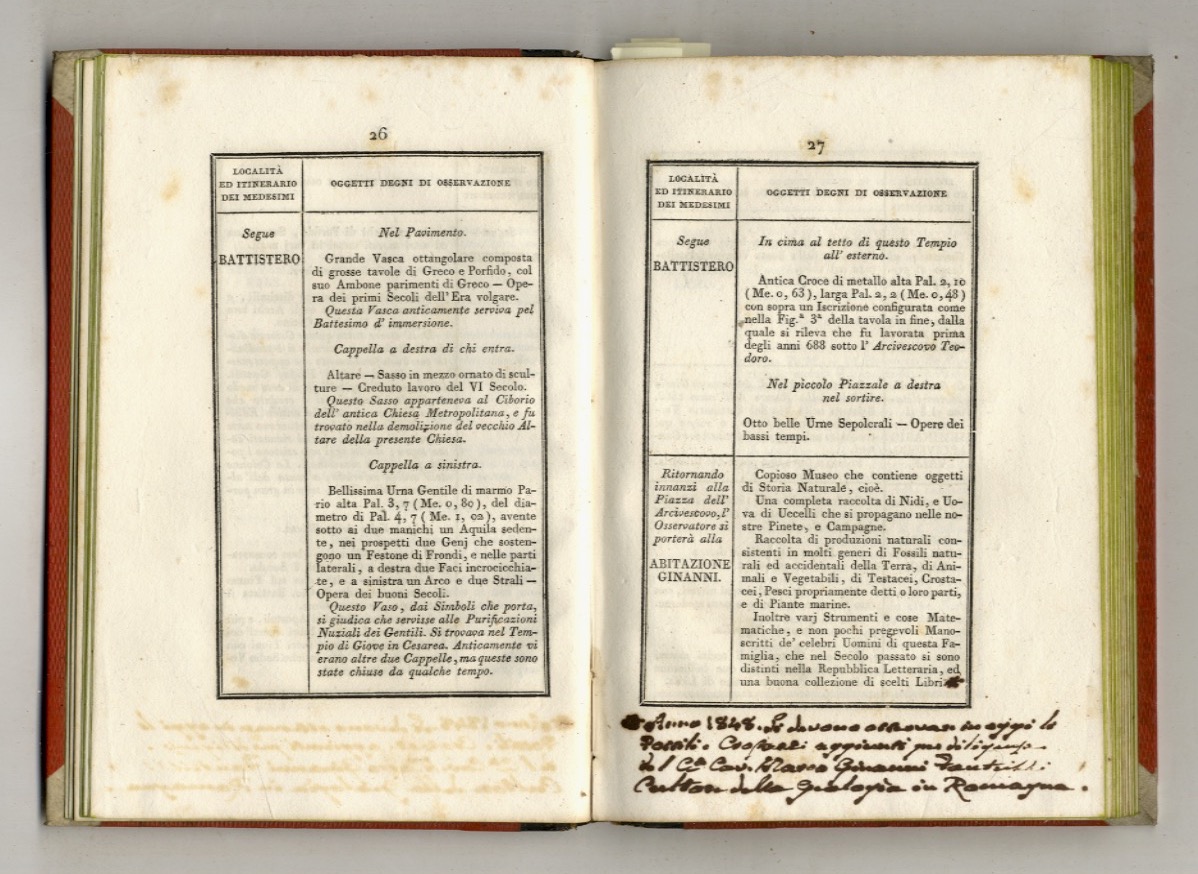 26
LOCALITÀ
ED ITINERARIO
DEI MEDESIMI
OGGETTI DEGNI DI OSSERVAZIONE
Segue
BATTISTERO
Nel Pavimento.
Grande Vasca ottangolare composta
di grosse tavole di Greco e Porfido, col
suo Ambone parimenti di Greco — Ope-
ra dei primi Secoli dell' Era volgare.
Questa Vasca anticamente serviva pel
Battesimo d' immersione.
Cappella a destra di chi entra.
Altare — Sasso in mezzo ornato di scul-
ture — Creduto lavoro del VI Secolo.
Questo Sasso apparteneva al Ciborio
dell' antica Chiesa Metropolitana, e fu
trovato nella demolizione del vecchio Al-
tare della presente Chiesa.
Cappella a sinistra.
Bellissima Urna Gentile di marmo Pa-
rio alta Pal. 3, 7 (Me. 0, 80), del dia-
metro di Pal. 4, 7 (Me. 1, 02), avente
sotto ai due manichi un Aquila seden-
te, nei prospetti due Genj che sosten-
gono un Festone di Frondi, e nelle parti
laterali, a destra due Faci incrocicchia-
te, e a sinistra un Arco e due Strali —
Opera dei buoni Secoli.
Questo Vaso, dai Simboli che porta,
si giudica che servisse alle Purificazioni
Nuziali dei Gentili. Si trovava nel Tem-
pio di Giove in Cesarea. Anticamente vi
erano altre due Cappelle, ma queste sono
state chiuse da qualche tempo.
27
LOCALITÀ
ED ITINERARIO
DEI MEDESIMI
OGGETTI DEGNI DI OSSERVAZIONE
Segue
BATTISTERO
In cima al tetto di questo Tempio
all' esterno.
Antica Croce di metallo alta Pal. 2, 10
(Me. 0, 63), larga Pal. 2, 2 (Me. 0,48)
con sopra un Iscrizione configurata come
nella Fig.ª 3ª della tavola in fine, dalla
quale si rileva che fu lavorata prima
degli anni 688 sotto l' Arcivescovo Teo-
doro.
Nel piccolo Piazzale a destra
nel sortire.
Otto belle Urne Sepolcrali — Opere dei
bassi tempi.
Ritornando
innanzi alla
Piazza dell'
Arcivescovo, l'
Osservatore si
porterà alla
ABITAZIONE
GINANNI.
Copioso Museo che contiene oggetti
di Storia Naturale, cioè.
Una completa raccolta di Nidi, e Uo-
va di Uccelli che si propagano nelle no-
stre Pinete, e Campagne.
Raccolta di produzioni naturali con-
sistenti in molti generi di Fossili natu-
rali ed accidentali della Terra, di Ani-
mali e Vegetabili, di Testacei, Crosta-
cei, Pesci propriamente detti o loro parti,
e di Piante marine.
Inoltre varj Strumenti e cose Mate-
matiche, e non pochi pregevoli Mano-
scritti de' celebri Uomini di questa Fa-
miglia, che nel Secolo passato si sono
distinti nella Repubblica Letteraria, ed
una buona collezione di scelti Libri
Anno 1848. Si devono osservare in oggi li
Fossili aggiunti per diligenza
del Cav. Marco Ginanni Fantuzzi
Cultore della Geologia in Romagna.